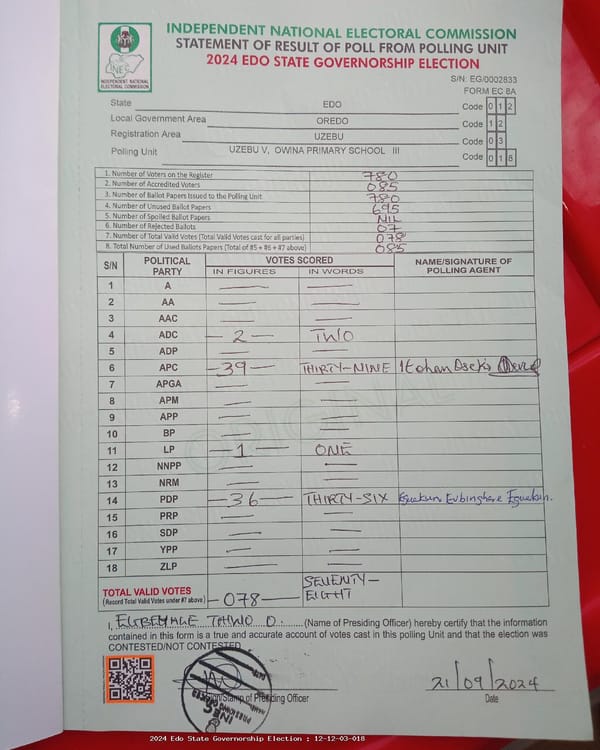 INDEPENDENT NATIONAL ELECTORAL COMMISSION
STATEMENT OF RESULT OF POLL FROM POLLING UNIT
2024 EDO STATE GOVERNORSHIP ELECTION
INDEPENDENT NATIONAL ELECTORAL COMMISSION
S/N: EG/0002833
FORM EC 8A
State EDO Code 0 1 2
Local Government Area OREDO Code 1 2
Registration Area UZEBU Code 0 3
Polling Unit UZEBU V, OWINA PRIMARY SCHOOL III Code 0 1 8
1. Number of Voters on the Register 780
2. Number of Accredited Voters 085
3. Number of Ballot Papers Issued to the Polling Unit 780
4. Number of Unused Ballot Papers 695
5. Number of Spoiled Ballot Papers NIL
6. Number of Rejected Ballots 07
7. Number of Total Valid Votes (Total Valid Votes cast for all parties) 078
8. Total Number of Used Ballots Papers (Total of #5 + #6 + #7 above) 085
S/N POLITICAL PARTY VOTES SCORED NAME/SIGNATURE OF POLLING AGENT
IN FIGURES IN WORDS
1 A — —
2 AA — —
3 AAC — —
4 ADC — 2 — TWO
5 ADP — —
6 APC — 39 — THIRTY-NINE Itohan
7 APGA — —
8 APM — —
9 APP — —
10 BP — —
11 LP — 1 — ONE
12 NNPP — —
13 NRM — —
14 PDP — 36 — THIRTY-SIX
15 PRP — —
16 SDP — —
17 YPP — —
18 ZLP — —
TOTAL VALID VOTES
(Record Total Valid Votes under #7 above) — 078 — SEVENTY-EIGHT
I, (Name of Presiding Officer) hereby certify that the information
contained in this form is a true and accurate account of votes cast in this polling Unit and that the election was
CONTESTED/NOT CONTESTED
21/09/2024
Presiding Officer Date
2024 Edo State Governorship Election : 12-12-03-018